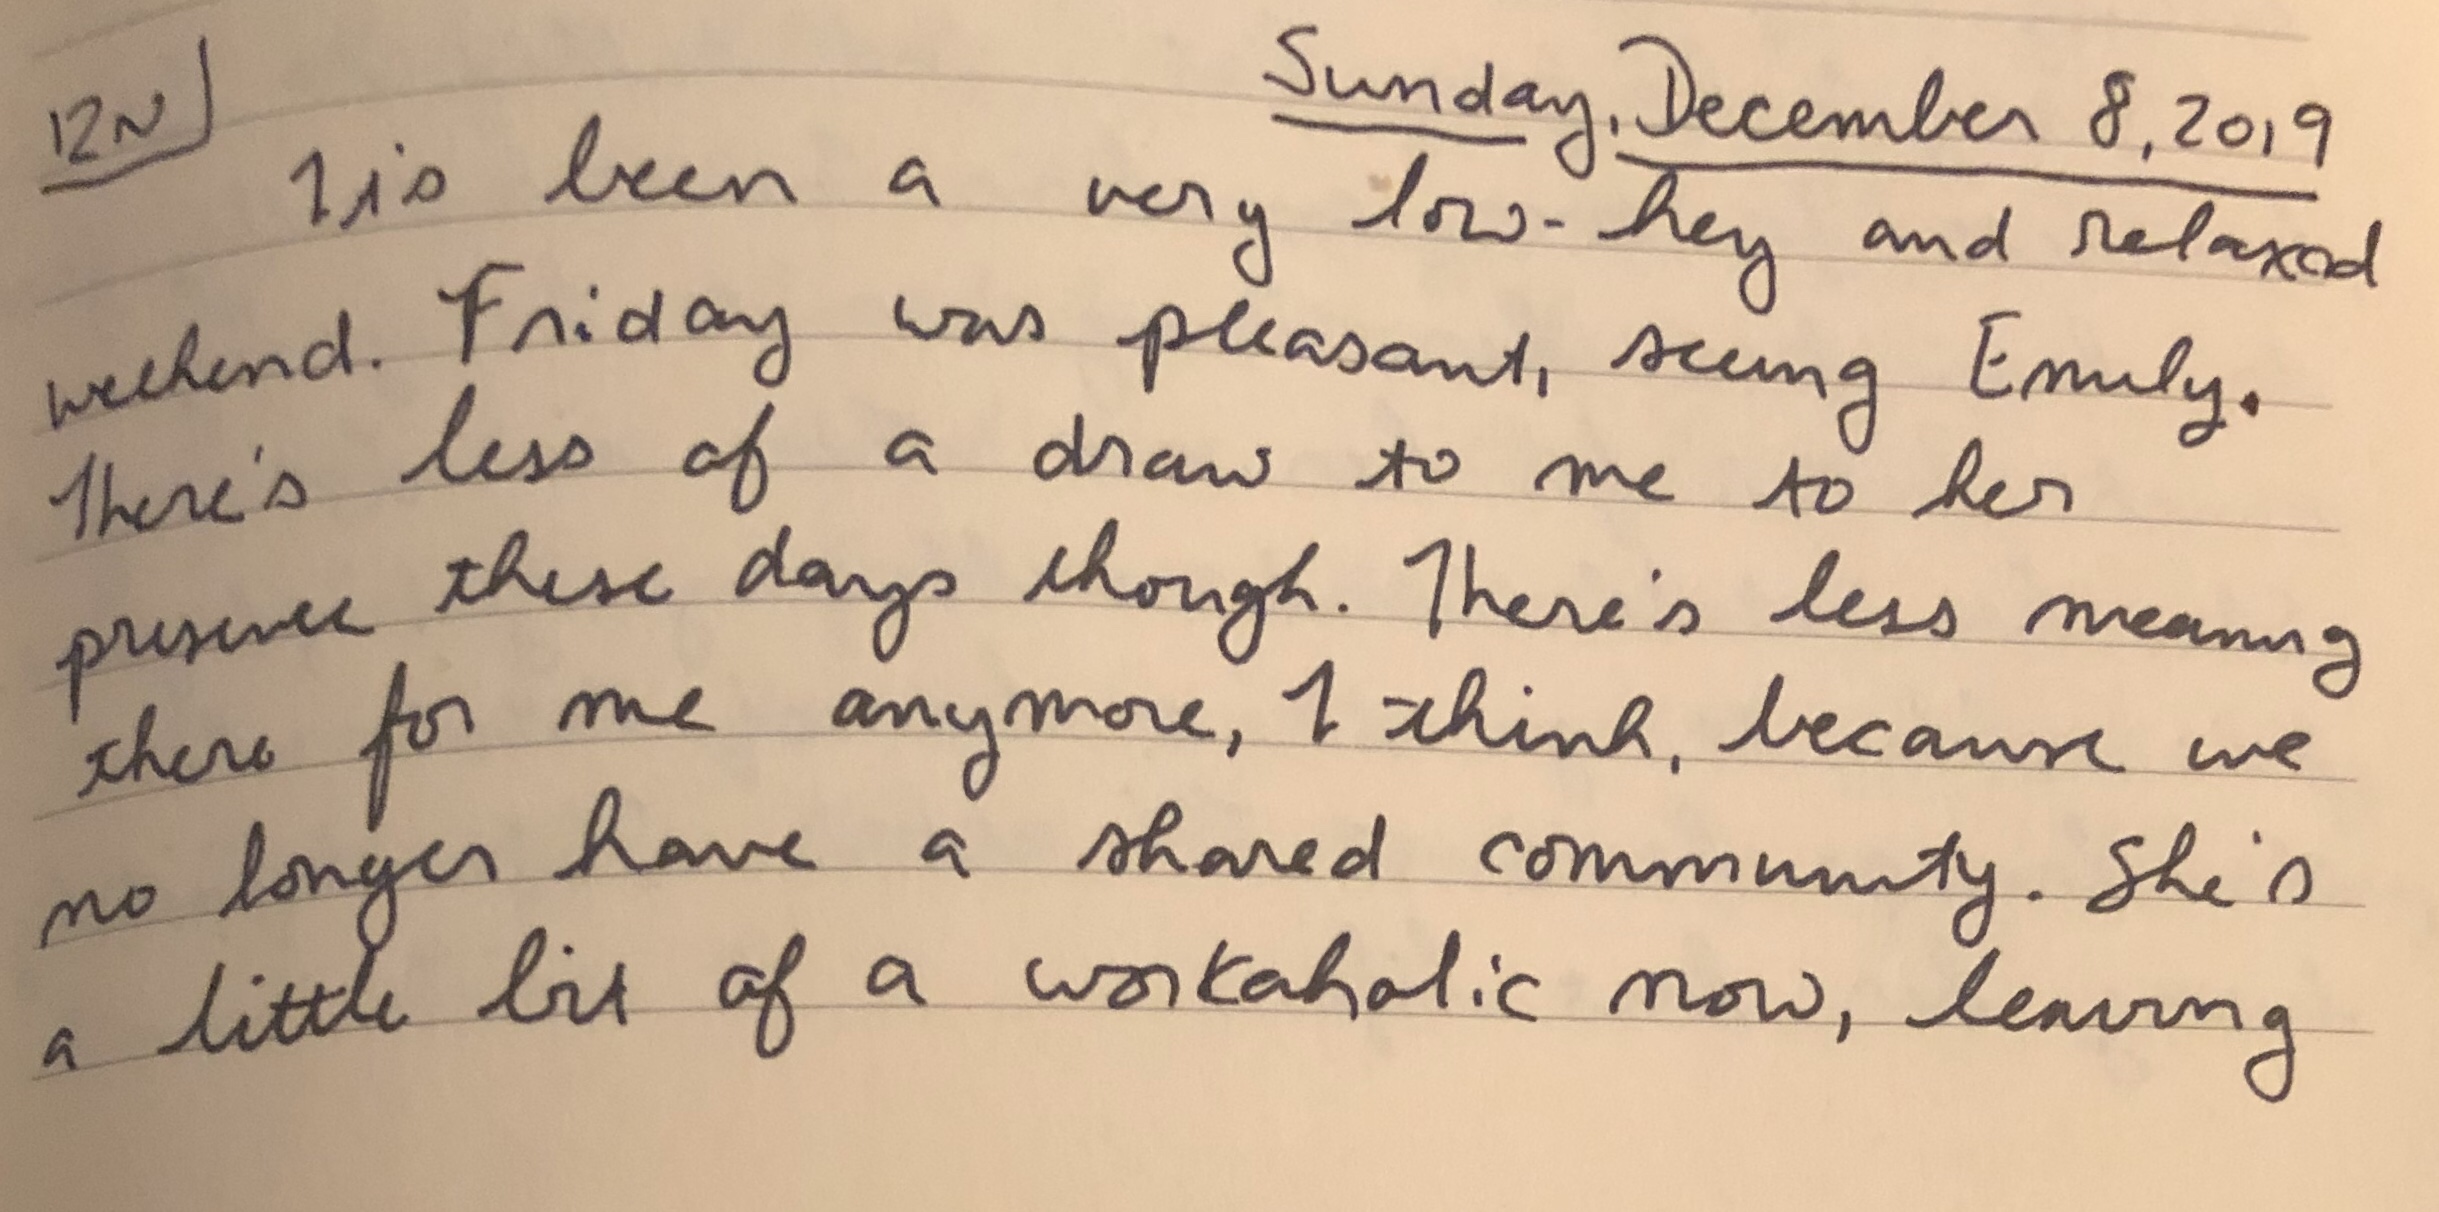 12N
Sunday, December 8, 2019
It's been a very low-key and relaxed
weekend. Friday was pleasant, seeing Emily.
There's less of a draw to me to her
presence these days though. There's less meaning
there for me anymore, I think, because we
no longer have a shared community. She's
a little bit of a workaholic now, leaving